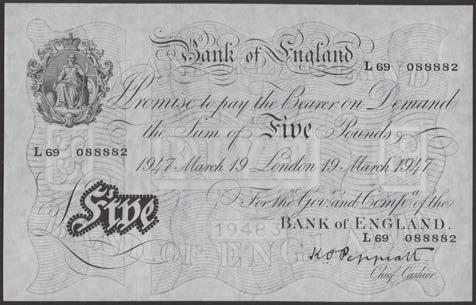 Bank of England
L69 088882
I Promise to pay the Bearer on Demand
the Sum of Five Pounds
L69 088882
1947 March 19 London 19 March 1947
For the Govr. and Compa. of the
BANK of ENGLAND.
L69 088882
Five
K O Peppiatt
Chief Cashier